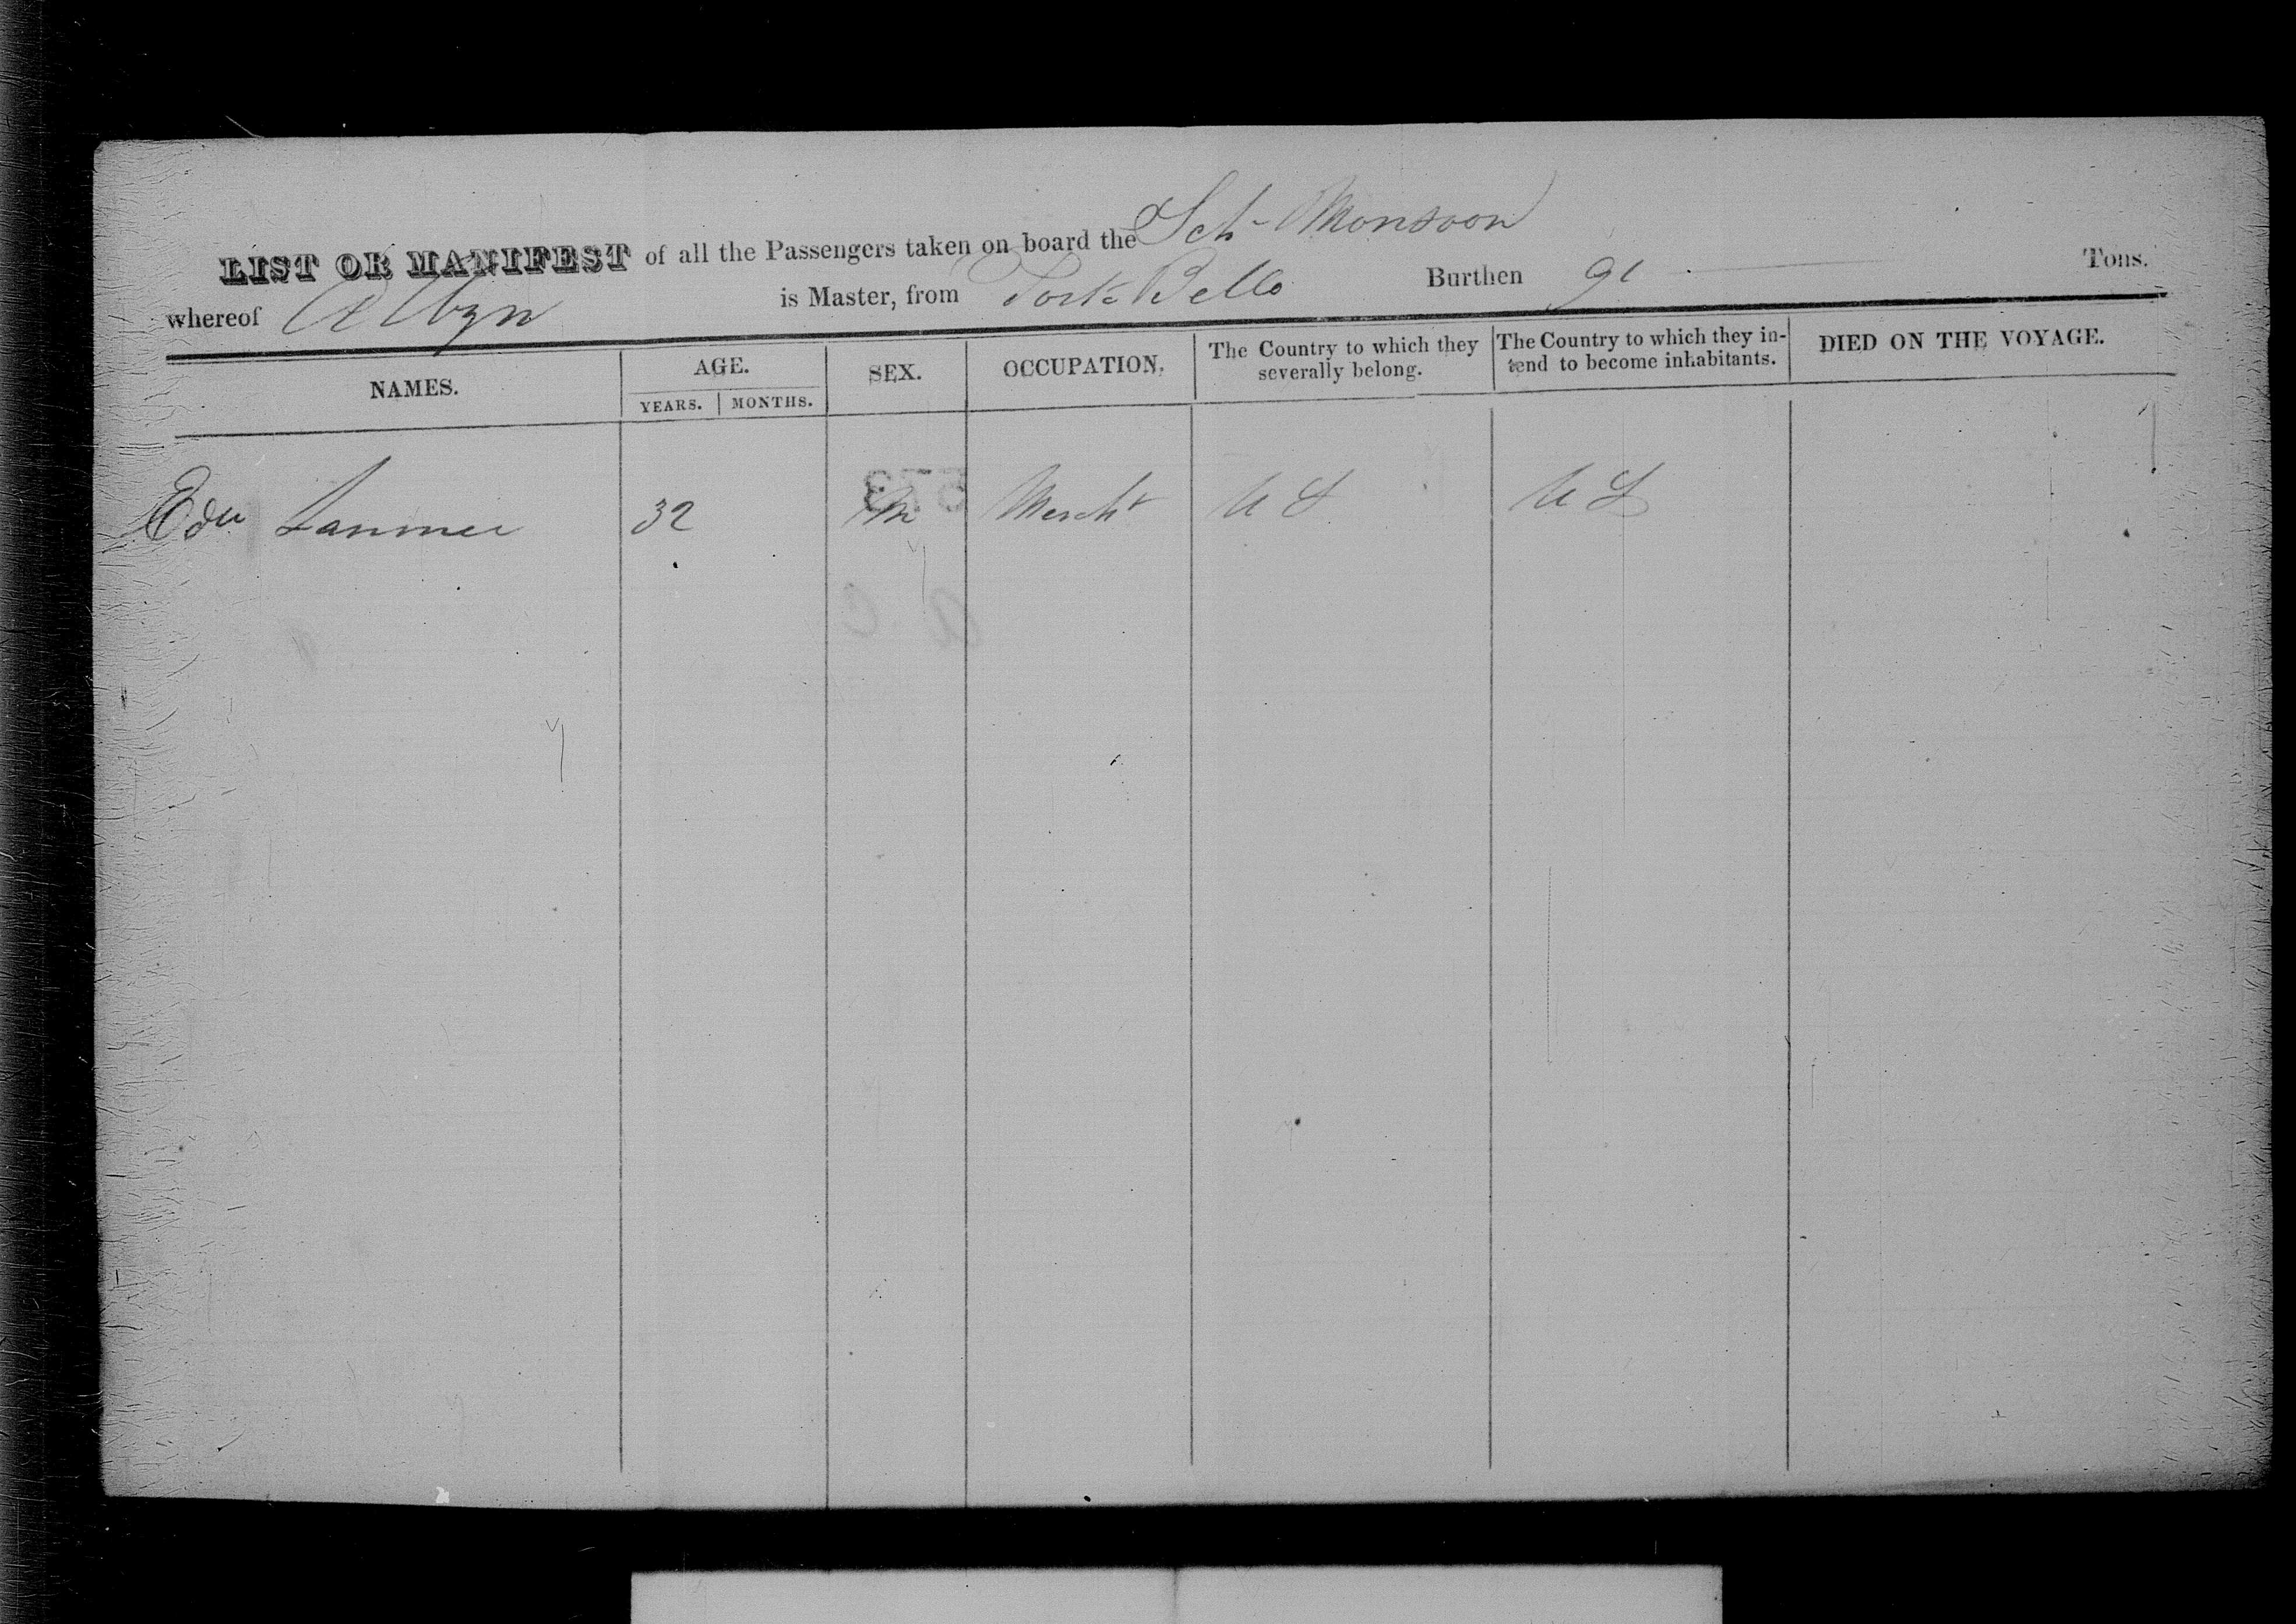 Sch Monsoon
LIST OR MANIFEST of all the Passengers taken on board the
whereof Albyn is Master, from Porto Bello Burthen 91 Tons.
NAMES. AGE. SEX. OCCUPATION. The Country to which they severally belong. The Country to which they intend to become inhabitants. DIED ON THE VOYAGE.
YEARS. MONTHS.
32 M Mercht U S U S